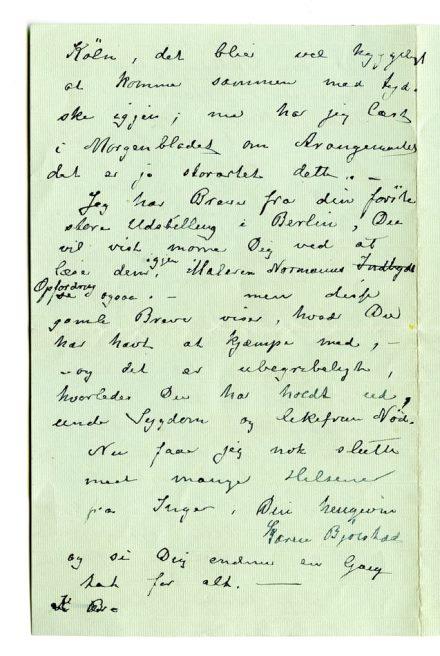 Köln, det blir vel hyggeligt
at komme sammen med tyd-
ske igjen; nu har jeg læst
i Morgenbladet om Arangementet
det er jo storartet dette. –
Jeg har Breve fra din første
store Udstilling i Berlin, Du
vil vist more Dig ved at
læse dem igjen, Maleren Normanns Indbyd
Opfordring ogsaa. – men disse
gamle Breve viser, hvad Du
har havt at kjæmpe med, –
– og det er ubegribeligt,
hvorledes Du har holdt ud,
under Sygdom og Nød.
Nu faar jeg nok slutte
med mange Hilsener
fra Inger, Din hengivne
Karen Bjølstad
og si Dig endnu en Gang
tak for alt. —